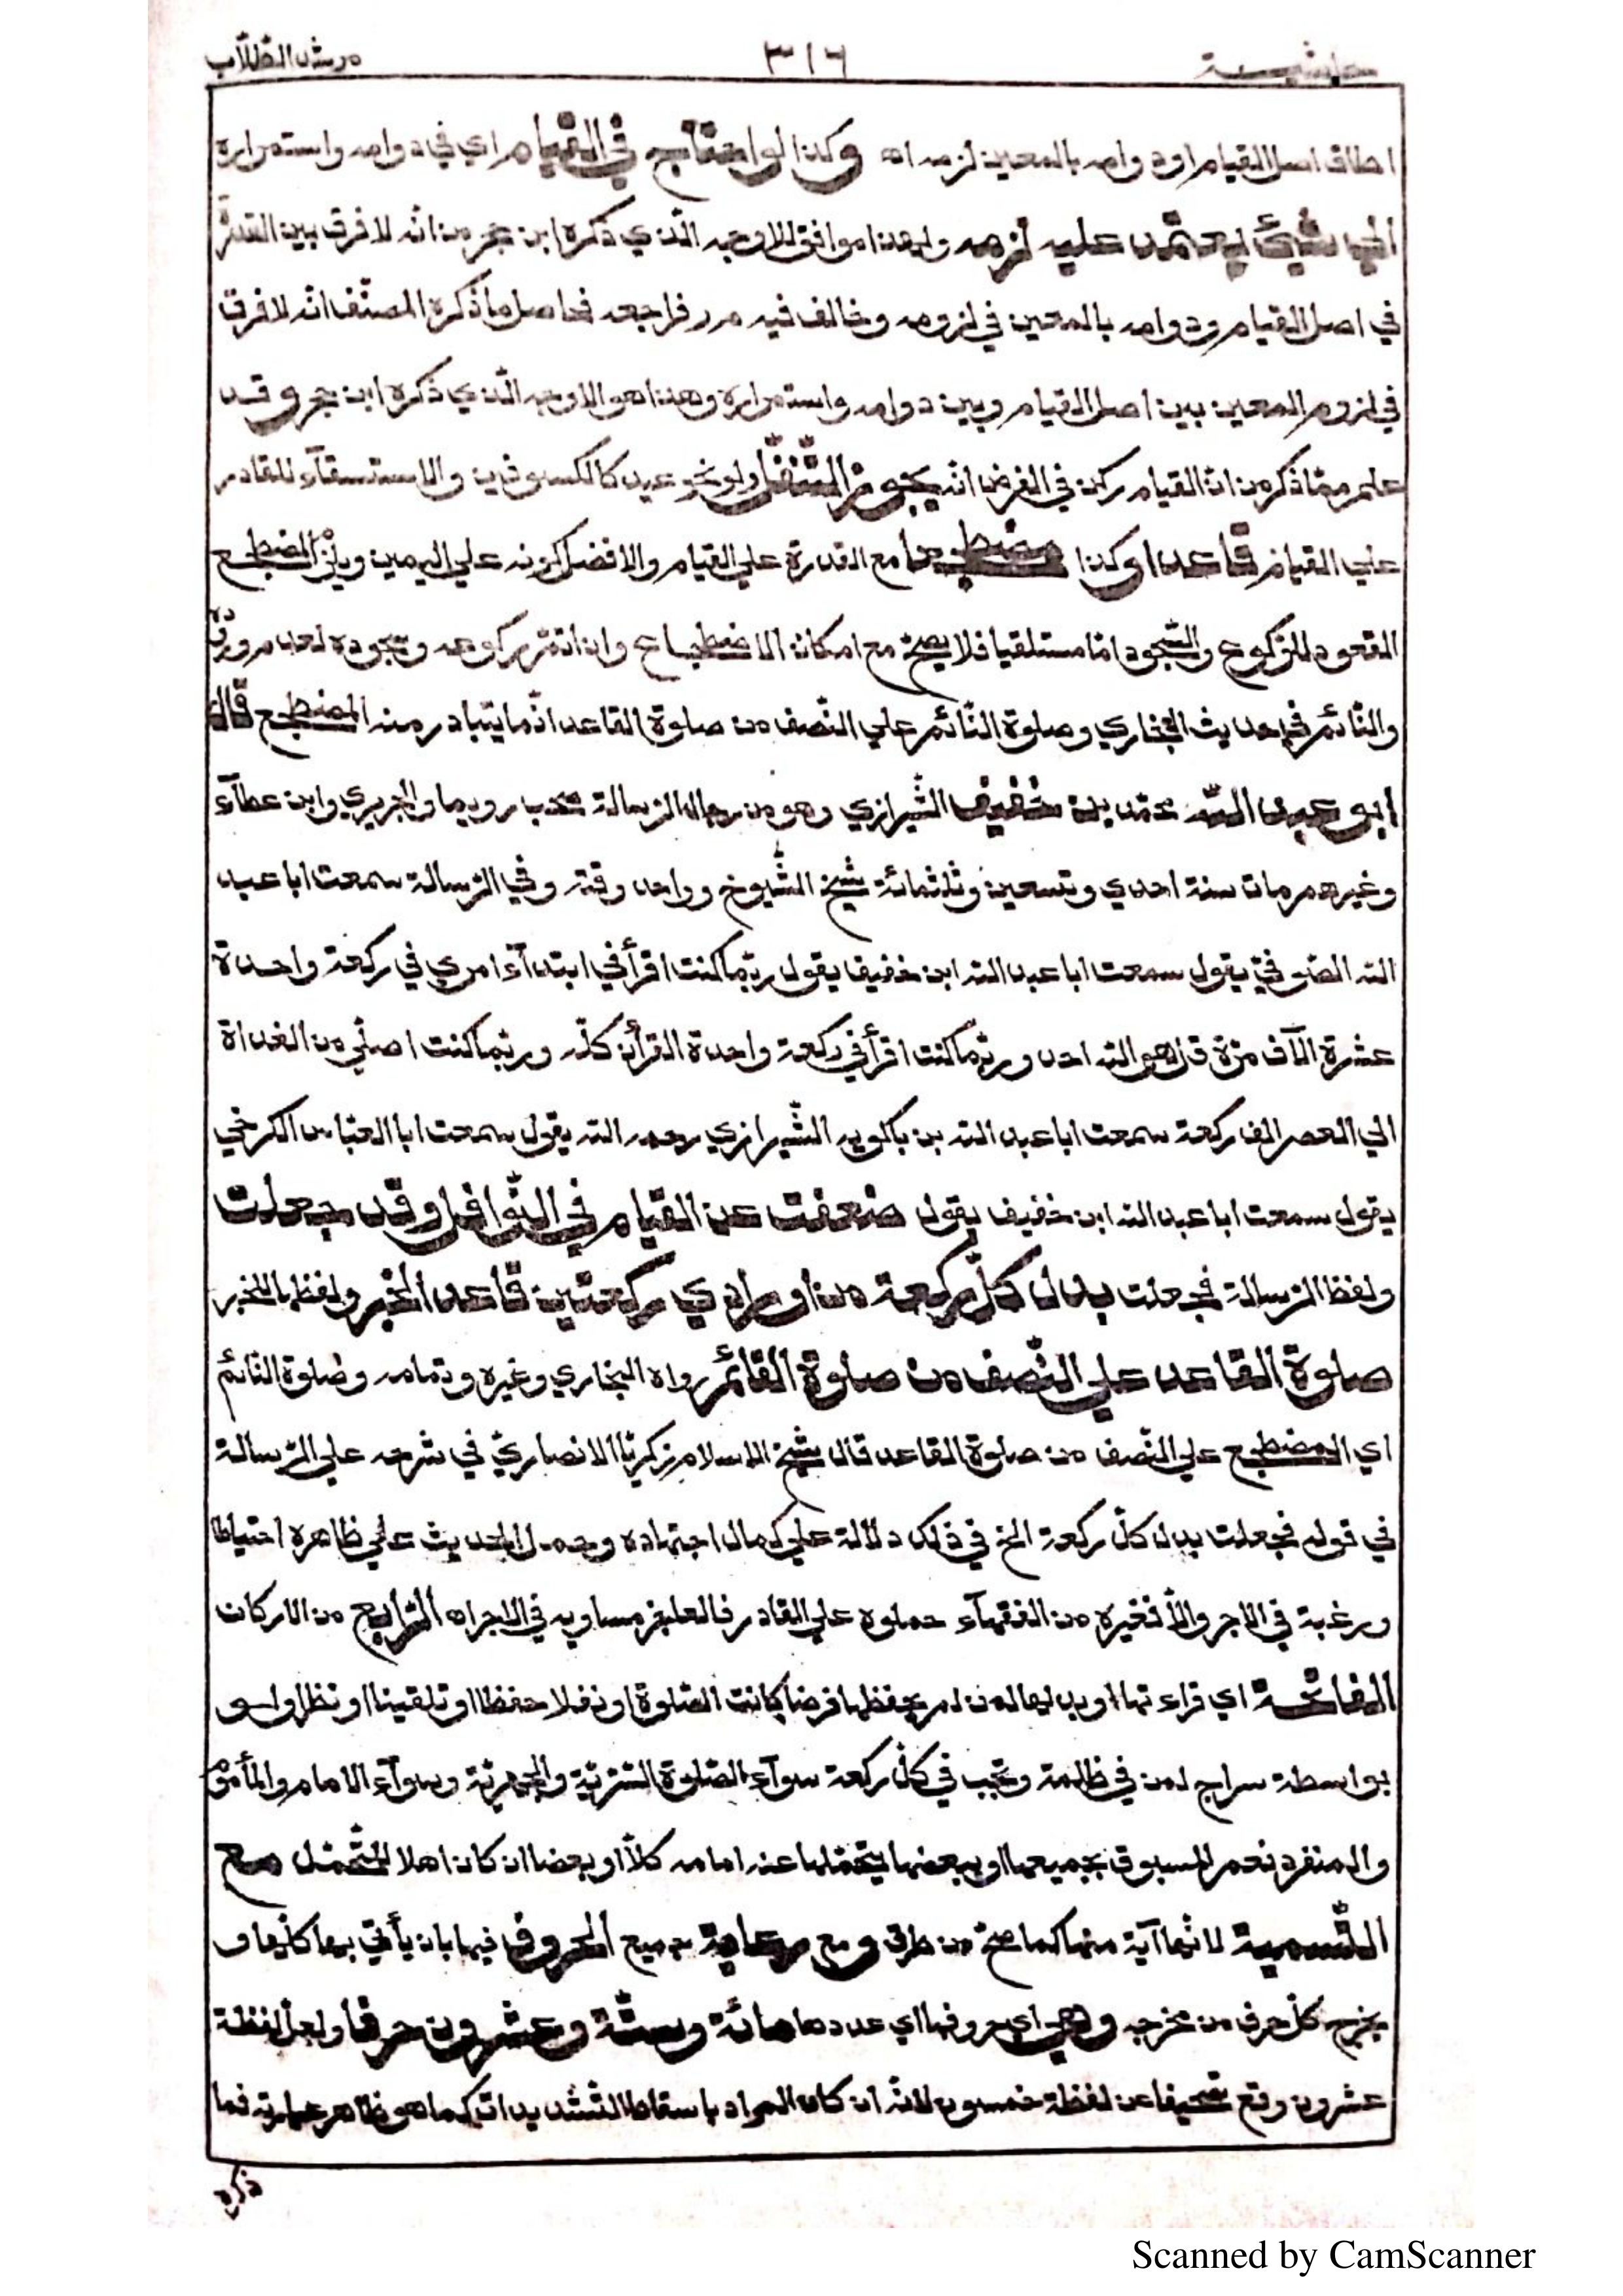 حاشية ٣١٦ مرشد الطّلّاب
اطاق اصل القيام او دوامه بالمعين لزمه اه وكذا لو احتاج في القيام اي في دوامه واستمراره
الي شيئ يعتمد عليه لزمه وهذا موافق للاوجه الّذي ذكره ابن حجر من انّه لا فرق بين القدرة
في اصل القيام ودوامه بالمعين في لزومه وخالف فيه م ر فراجعه فحاصل ما ذكره المصنّف انّه لا فرق
في لزوم المعين بين اصل القيام وبين دوامه واستمراره وهذا هو الاوجه الّذي ذكره ابن حجر وقد
علم ممّا ذكر من انّ القيام ركن في الفرض انّه يجوز التّنفّل ولو نحو عيد كالكسوفين والاستسقآء للقادر
علي القيام قاعدا وكذا مضطجعا مع القدرة علي القيام والافضل كونه علي اليمين ويلزم المضطجع
القعود للرّكوع والسّجود امّا مستلقيا فلا يصحّ مع امكان الاضطجاع وان اتمّ ركوعه وسجوده لعدم وروده
والنّائم في حديث البخاري وصلوة النّائم علي النّصف من صلوة القاعد انّما يتبادر منه المضطجع قال
ابو عبد اللّه محمّد بن خفيف الشّيرازي وهو من رجال الرّسالة صحب رويما والجريري وابن عطآء
وغيرهم مات سنة احدي وتسعين وثلثمائة شيخ الشّيوخ وواحد وقته وفي الرّسالة سمعت ابا عبد
اللّه الصّوفيّ يقول سمعت ابا عبد اللّه ابن خفيف يقول ربّما كنت اقرأ في ابتدآء امري في ركعة واحدة
عشرة آلاف مرّة قل هو اللّه احد وربّما كنت اقرأ في ركعة واحدة القرأن كلّه وربّما كنت اصلّي من الغداة
الي العصر الف ركعة سمعت ابا عبد اللّه بن باكويه الشّيرازي رحمه اللّه يقول سمعت ابا العبّاس الكرخي
يقول سمعت ابا عبد اللّه ابن خفيف يقول ضعفت عن القيام في النّوافل وقد جعلت
ولفظ الرّسالة فجعلت بدل كلّ ركعة من اورادي ركعتين قاعدا لخبر ولفظها للخبر
صلوة القاعد علي النّصف من صلوة القائم رواه البخاري وغيره وتمامه وصلوة النّائم
اي المضطجع علي النّصف من صلوة القاعد قال شيخ الاسلام زكريّا الانصاريّ في شرحه علي الرّسالة
في قوله فجعلت بدل كلّ ركعة الخ في ذلك دلالة علي كمال اجتهاده وحمل الحديث علي ظاهره احتياطا
ورغبة في الاجر والّا فغيره من الفقهآء حملوه علي القادر فالعاجز مساويه في الاجر اه الرّابع من الاركان
الفاتحة اي قراءتها او بدلها لمن لم يحفظها فرضا كانت الصّلوة او نفلا حفظا او تلقينا او نظرا ولو
بواسطة سراج لمن في ظلمة وتجب في كلّ ركعة سوآء الصّلوة السّرّيّة والجهريّة وسوآء الامام والمأموم
والمنفرد نعم المسبوق بجميعها او ببعضها يتحمّلها عنه امامه كلّا او بعضا ان كان اهلا للتّحمّل مع
التّسمية لانّها آية منها كما صحّ من طرق و مع رعاية جميع الحروف فيها بان يأتي بها كلّها و
يخرج كلّ حرف من مخرجه وهي اي حروفها اي عددها مائة وستّة وعشرون حرفا ولعلّ لفظة
عشرون وقع تصحيفا عن لفظة خمسون لانّه ان كان المراد باسقاط التّشديدات كما هو ظاهر عبارته فما
ذكره
Scanned by CamScanner